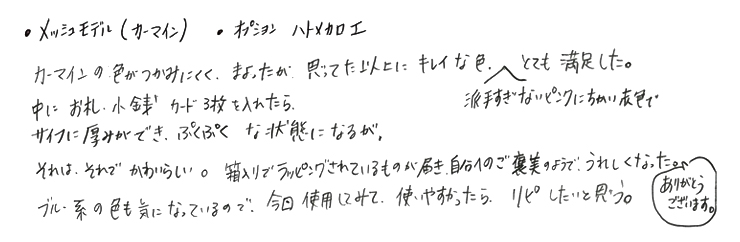 ・メッシュモデル(カーマイン) ・オプション ハトメカロエ
カーマインの色がつかみにくく、まよったが、思ってた以上にキレイな色、とても満足した。
派手すぎないピンクにちかい灰色で
中にお札、小銭、カード3枚を入れたら、
サイフに厚みができ、ぷくぷくな状態になるが、
それは、それでかわいらしい。箱入りでラッピングされているものが届き、自分へのご褒美のようで、うれしくなった。
ありがとう
ございます。
ブルー系の色も気になっているので、今回使用してみて、使いやすかったら、リピしたいと思う。